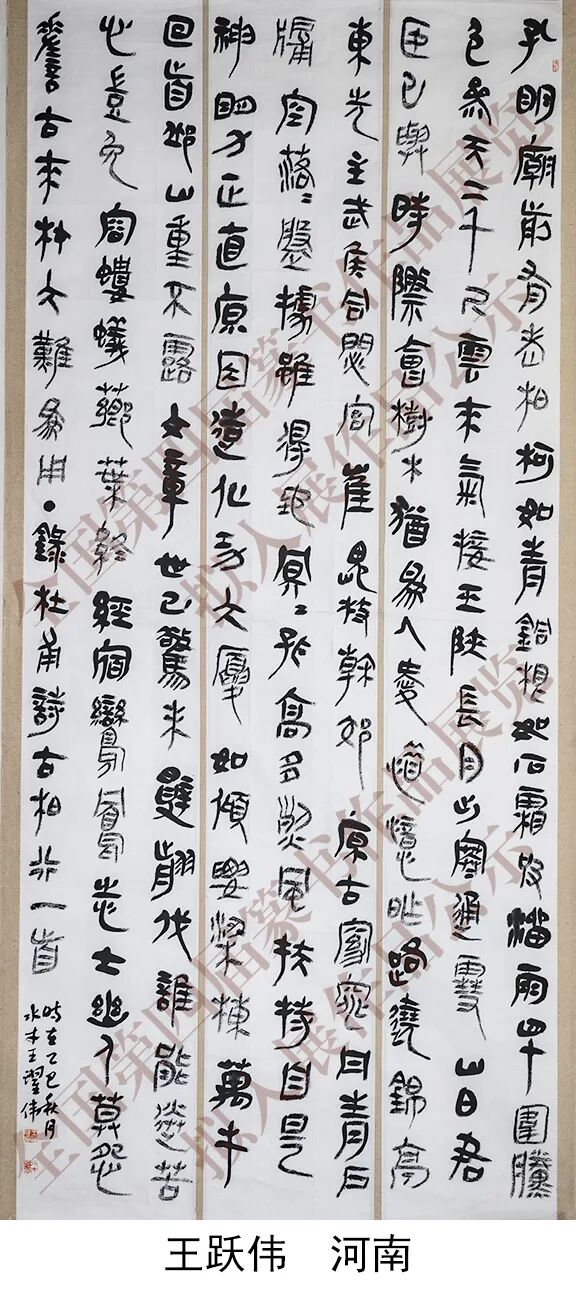 孔明廟前有老柏柯如青銅根如石霜皮溜雨四十圍黛
色參天二千尺雲來氣接巫峽長月出寒通雪山白君
臣已與時際會樹木猶為人愛惜憶昨路繞錦亭
東先主武侯同閟宮崔嵬枝幹郊原古窈窕丹青戶
牖空落落盤踞雖得地冥冥孤高多烈風扶持自是
神明力正直原因造化功大廈如傾要梁棟萬牛
回首丘山重不露文章世已驚未辭翦伐誰能送苦
心豈免容螻蟻香葉終經宿鸞鳳志士幽人莫怨
嗟古來材大難為用·錄杜甫詩古柏行一首
時在乙巳秋月
水木王躍偉
全国第四届篆书作品展览
拟入展作品公示
全国第四届篆书作品展览
拟入展作品公示
王跃伟 河南